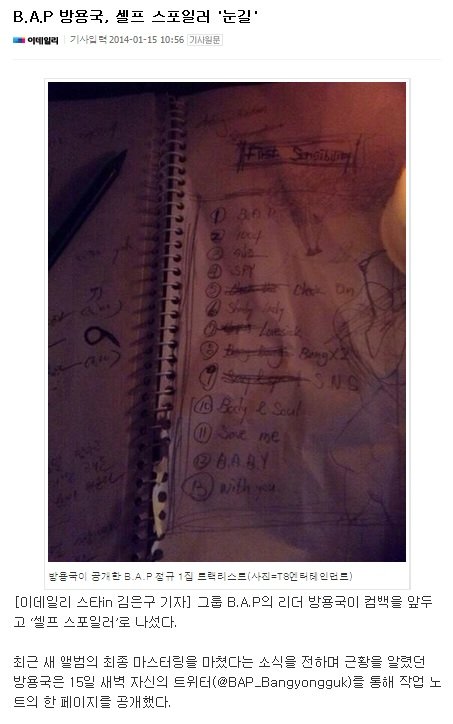 B.A.P 방용국, 셀프 스포일러 '눈길'
이데일리 기사입력 2014-01-15 10:56 기사원문
First Sensibility
① B.A.P
② 1004
③
④ SPY
⑤ Check On
⑥ Shady lady
⑦ Lovesick
⑧ Bang X2
⑨ S N S
⑩ Body & Soul
⑪ Save me
⑫ B.A.B.Y
⑬ With you
방용국이 공개한 B.A.P 정규 1집 트랙리스트(사진=TS엔터테인먼트)
[이데일리 스타in 김은구 기자] 그룹 B.A.P의 리더 방용국이 컴백을 앞두
고 ‘셀프 스포일러’로 나섰다.
최근 새 앨범의 최종 마스터링을 마쳤다는 소식을 전하며 근황을 알렸던
방용국은 15일 새벽 자신의 트위터(@BAP_Bangyongguk)를 통해 작업 노
트의 한 페이지를 공개했다.